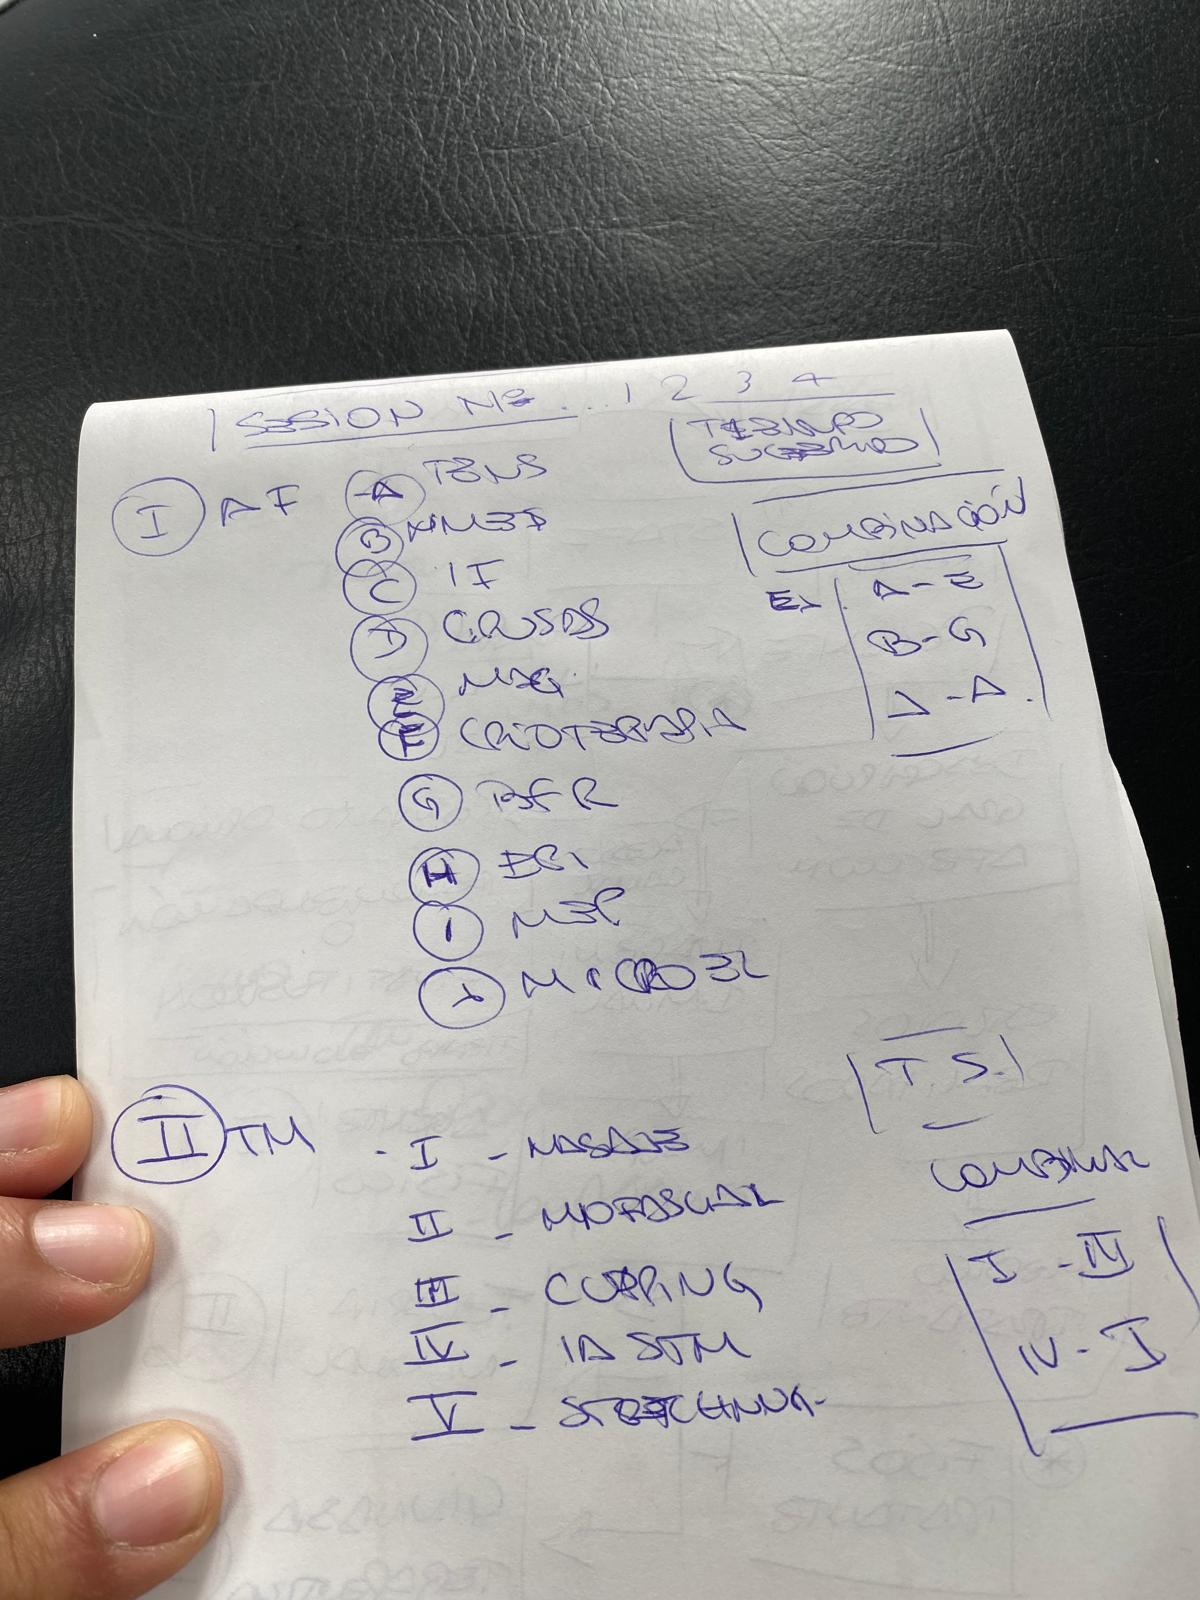 SESION Nº... 1 2 3 4
TIEMPO
SUGERIDO
I AF
A TENS
B NMES
C IF
D CRUSAS
E MAG.
F CRIOTERAPIA
G BFR
H
I MEP
J MICROEL
COMBINACIÓN
EJ A-E
B-G
D-A
II TM
T.S.
- I - MASAJE
II - MIOFASCIAL
III - CUPPING
IV - IASTM
V - STRETCHING
COMBINAR
I - III
IV - I